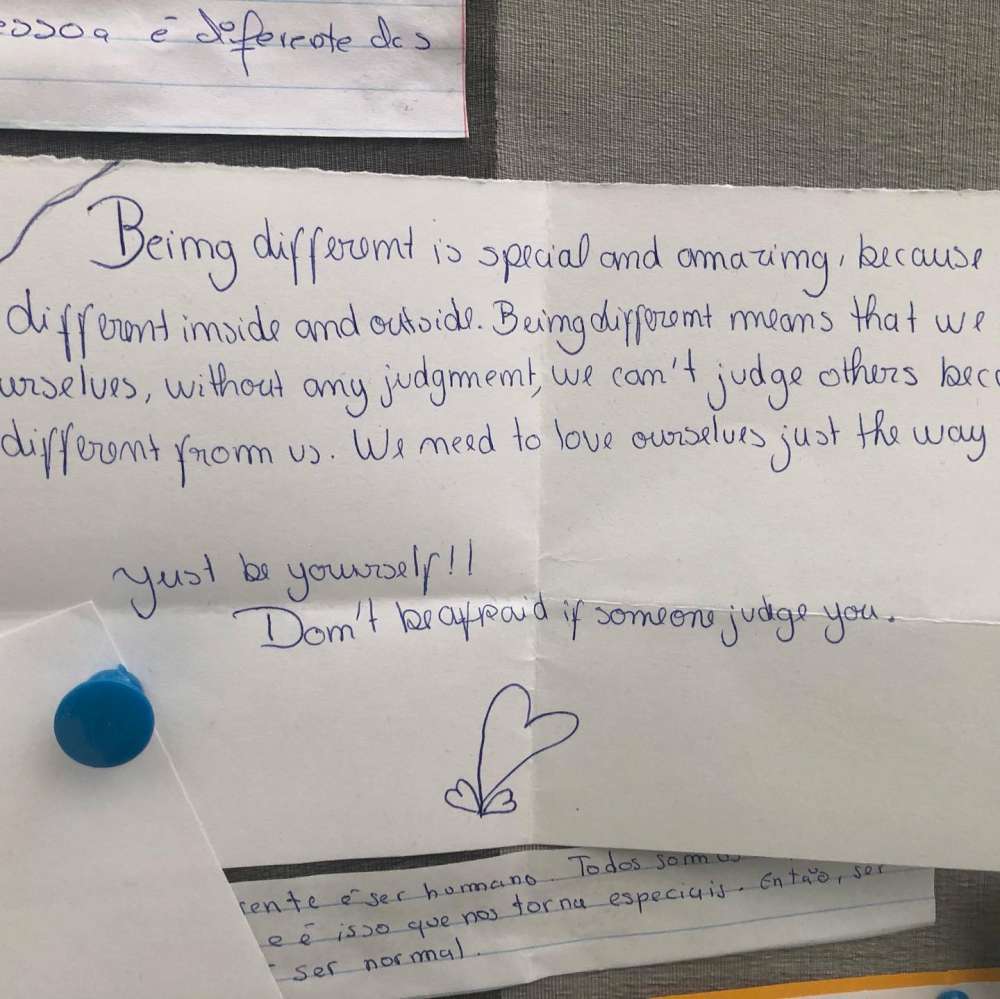 essoa é diferente das
Being different is special and amazing, because
different inside and outside. Being different means that we
urselves, without any judgment, we can't judge others beca
different from us. We need to love ourselves just the way
Just be yourself!!
Don't be afraid if someone judge you.
rente é ser humano. Todos somos
e é isso que nos torna especiais. Então, ser
ser normal.